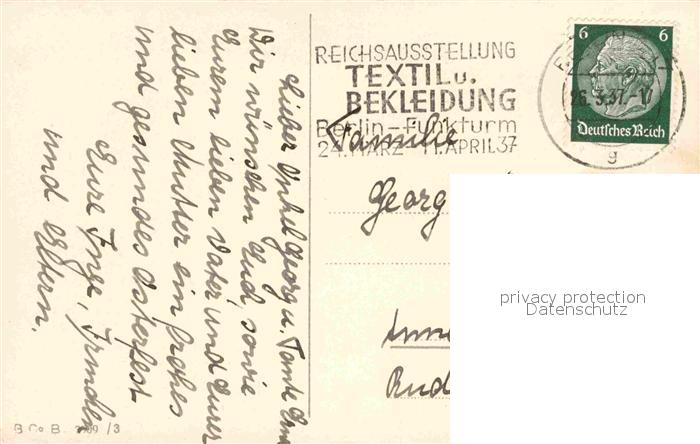 Lieber Onkel Georg u. Tante
Wir wünschen Euch sowie
Eurem lieben Vater und Eurer
lieben Mutter ein frohes
und gesundes Osterfest
Eure Inge,
und Eltern.
B. Co. B. /3
REICHSAUSSTELLUNG
TEXTIL u.
BEKLEIDUNG
Berlin-Funkturm
24. MÄRZ - 11. APRIL 37
26.3.37.
g
6 6
Deutsches Reich
Familie
Georg
privacy protection
Datenschutz